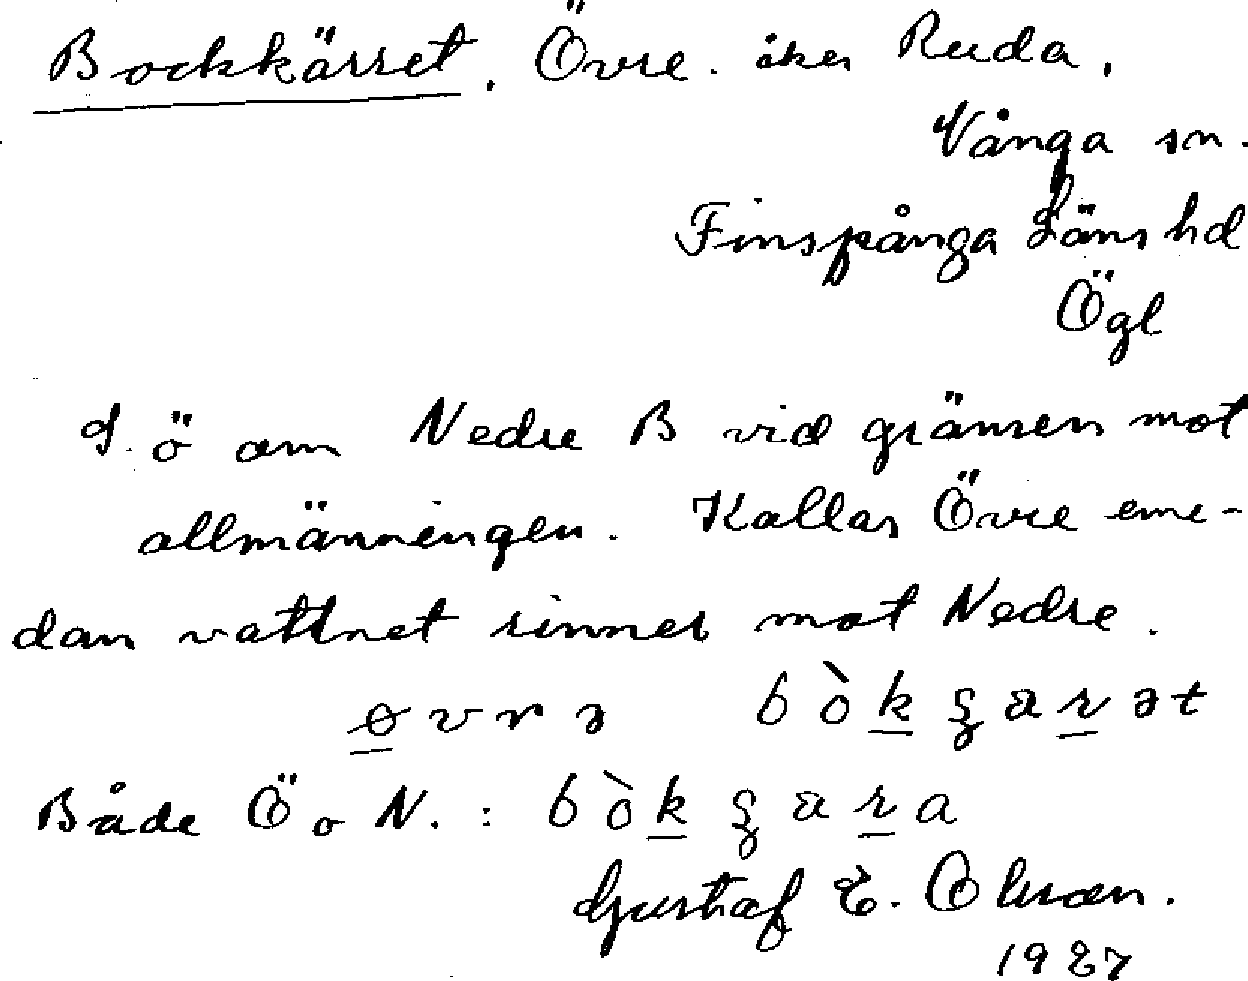 Bockkärret, Övre. åker Ruda,
Vånga sn.
Finspånga Läns hd
Ögl
S. ö om Nedre B vid gränsen mot
allmänningen. Kallas Övre eme-
dan vattnet rinner mot Nedre.
ɵvrə bòkʂarət
Både Ö o N. : bòkʂara
Gustaf E. Olsson.
1927